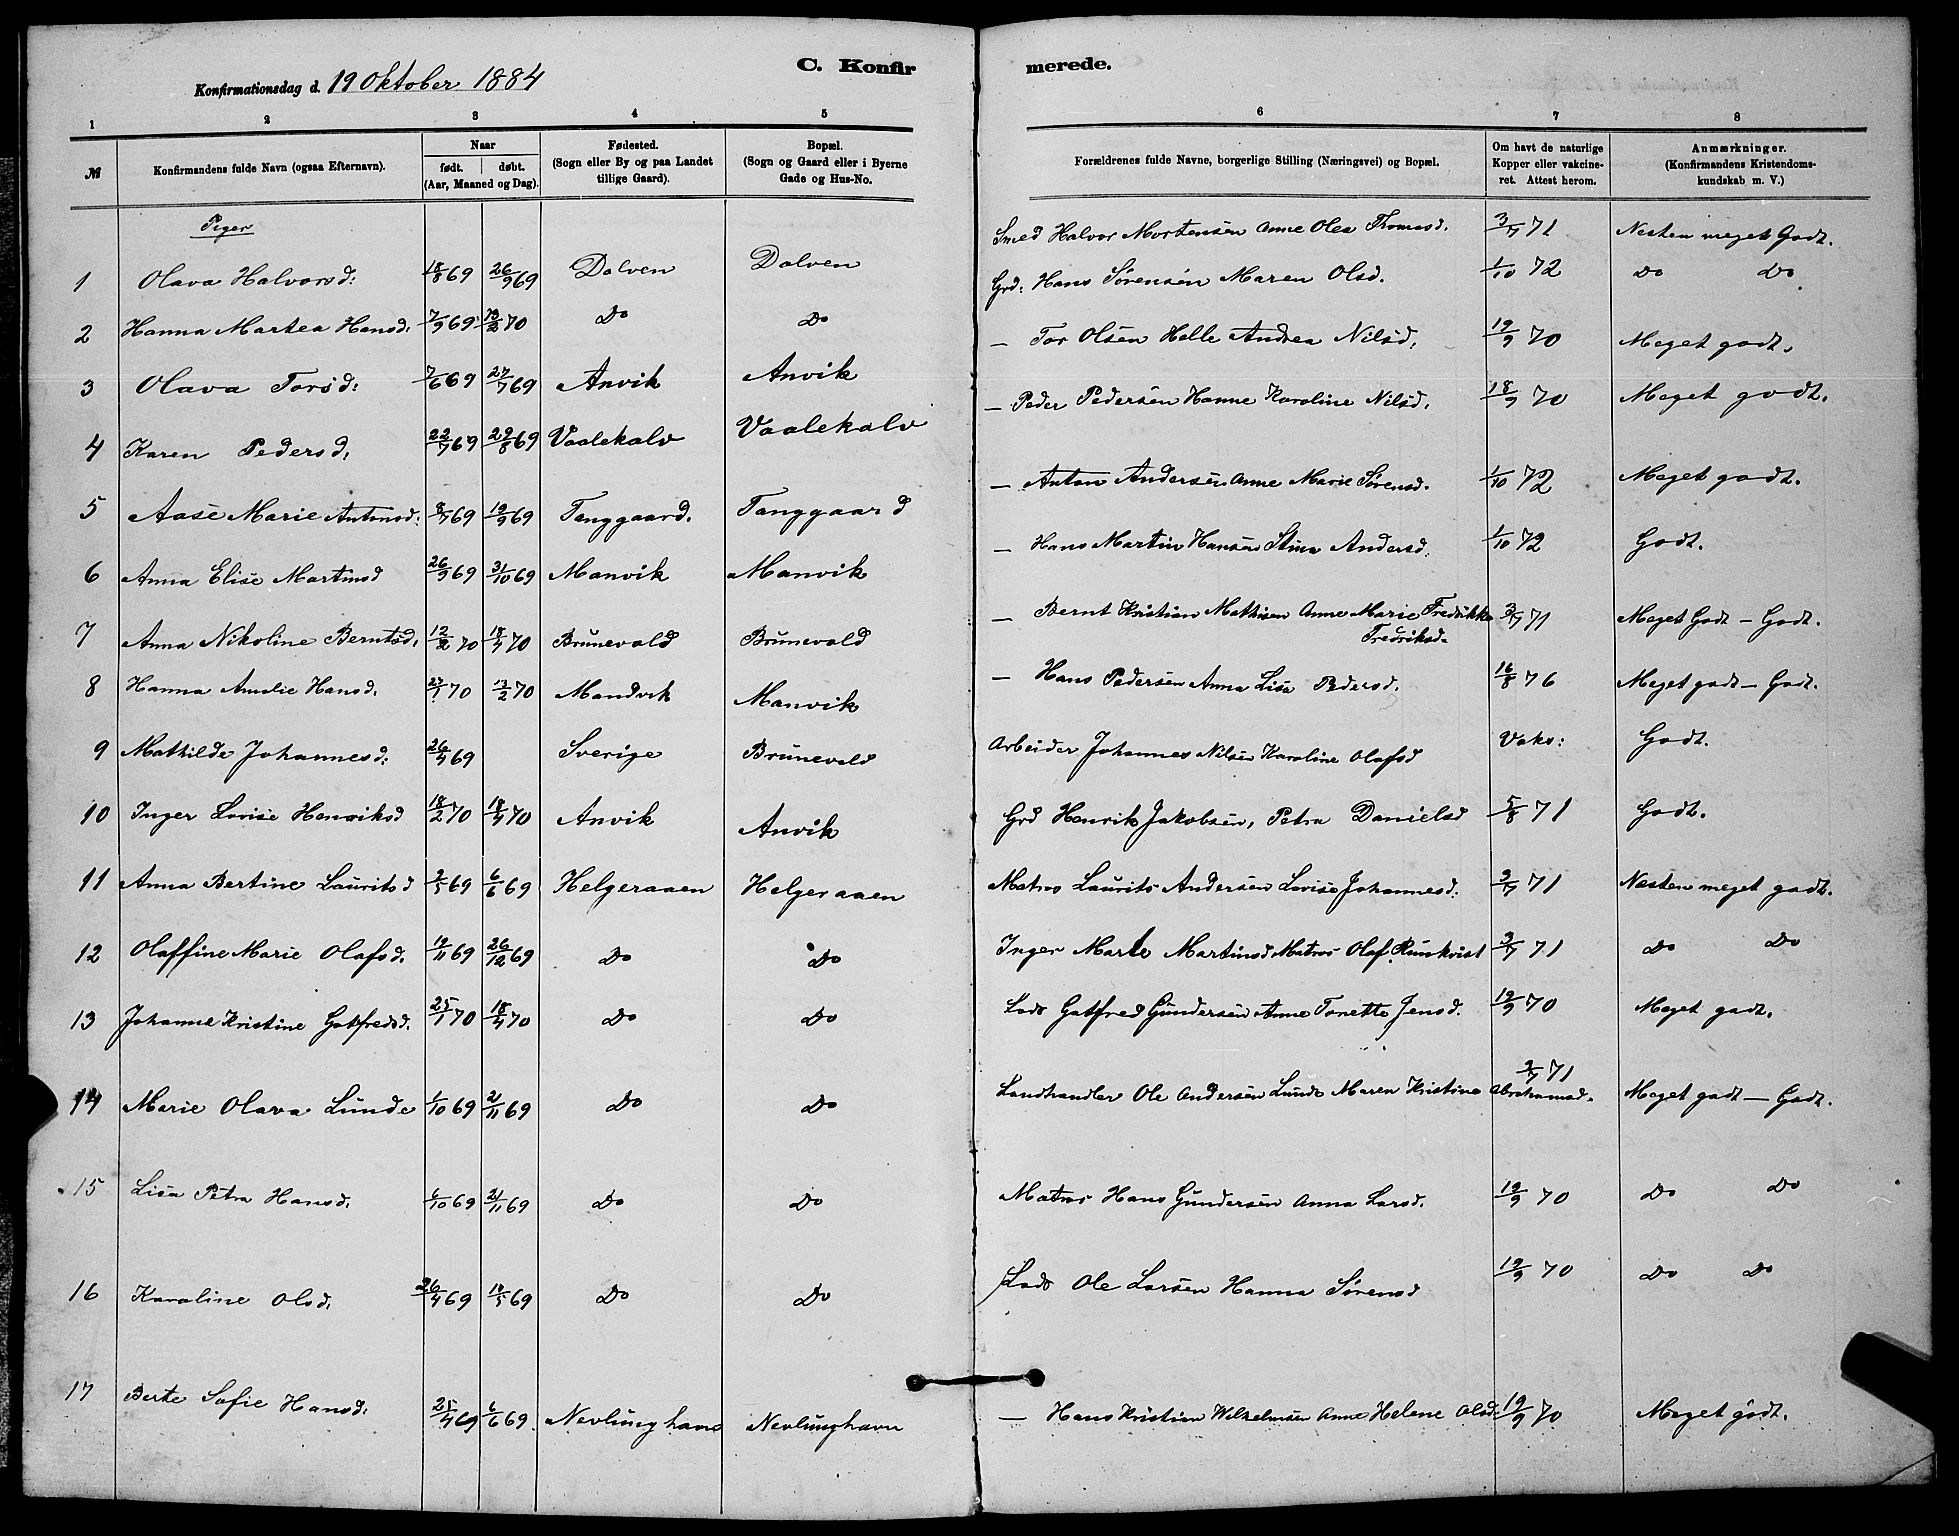 C. Konfir merede.
Konfirmationsdag d. 19 Oktober 1884
1 2 3 4 5 6 7 8
№ Konfirmandens fulde Navn (ogsaa Efternavn). Naar født. døbt. (Aar, Maaned og Dag). Fødested. (Sogn eller By og paa Landet tillige Gaard). Bopæl. (Sogn og Gaard eller i Byerne Gade og Hus-No. Forældrenes fulde Navne, borgerlige Stilling (Næringsvei) og Bopæl. Om havt de naturlige Kopper eller vakcineret. Attest herom. Anmærkninger. (Konfirmandens Kristendomskundskab m. V.)
Piger
1 Olava Halvorsd: 18/8 69 26/9 69 Dolven Dolven Smed Halvor Mortensen Anne Olea Thomasd. 3/7 71 Nesten meget Godt.
2 Hanna Martea Hansd. 7/9 69 13/2 70 Do Do Grd: Hans Sørensen Maren Olsd. 1/10 72 Do Do
3 Olava Torsd: 7/6 69 27/7 69 Anvik Anvik — Tor Olsen Helle Andrea Nilsd. 19/9 70 Meget godt.
4 Karen Pedersd. 22/7 69 29/8 69 Vaalekalv Vaalekalv — Peder Pedersen Hanne Karoline Nilsd. 18/9 70 Meget godt.
5 Aase Marie Antonsd. 8/7 69 19/9 69 Tanggaard. Tanggaard — Anton Andersen Anne Marie Sørensd. 1/10 72 Meget godt.
6 Anna Elise Martinsd 26/9 69 31/10 69 Manvik Manvik — Hans Martin Hansen Stina Andersd. 1/10 72 Godt.
7 Anna Nikoline Berntsd. 12/2 70 18/4 70 Brunevald Brunevald — Bernt Kristian Mathisen Anne Marie Fredrikke Fredriksd. 3/7 71 Meget Godt – Godt.
8 Hanna Amalie Hansd. 27/1 70 13/2 70 Mandvik Manvik — Hans Pedersen Anna Lisa Pedersd. 16/8 76 Meget godt – Godt.
9 Mathilde Johannesd. 26/4 69 Sverige Brunevald Arbeider Johannes Nilsen Karoline Olafsd Vaks: Godt.
10 Inger Lovise Henriksd 18/2 70 18/4 70 Anvik Anvik Grd Henrik Jakobsen, Petra Danielsd 5/8 71 Godt.
11 Anna Bertine Lauritsd 2/5 69 6/6 69 Helgeraaen Helgeraaen Matros Laurits Andersen Lovise Johannesd. 3/7 71 Næsten meget godt.
12 Olaffine Marie Olafsd. 19/11 69 26/12 69 Do Do Inger Marte Martinsd Matros Olaf Runkvist 3/7 71 Do Do
13 Johanne Kristine Gotfredsd. 25/1 70 18/4 70 Do Do Lods Gotfred Gundersen Anne Tonette Jensd. 19/9 70 Meget godt.
14 Marie Olava Lunde 1/10 69 21/11 69 Do Do Landhandler Ole Andersen Lunde Maren Kristine Abrahamsd. 3/7 71 Meget godt – Godt.
15 Lisa Petra Hansd. 6/10 69 21/11 69 Do Do Matros Hans Gundersen Anna Larsd. 19/9 70 Do Do
16 Karoline Olsd. 26/4 69 18/5 69 Do Do Lods Ole Larsen Hanna Sørensd 19/9 70 Do Do
17 Berte Sofie Hansd. 25/4 69 6/6 69. Nevlunghavn Nevlunghavn — Hans Kristian Wilhelmsen Anne Helene Olsd. 19/9 70 Meget godt.